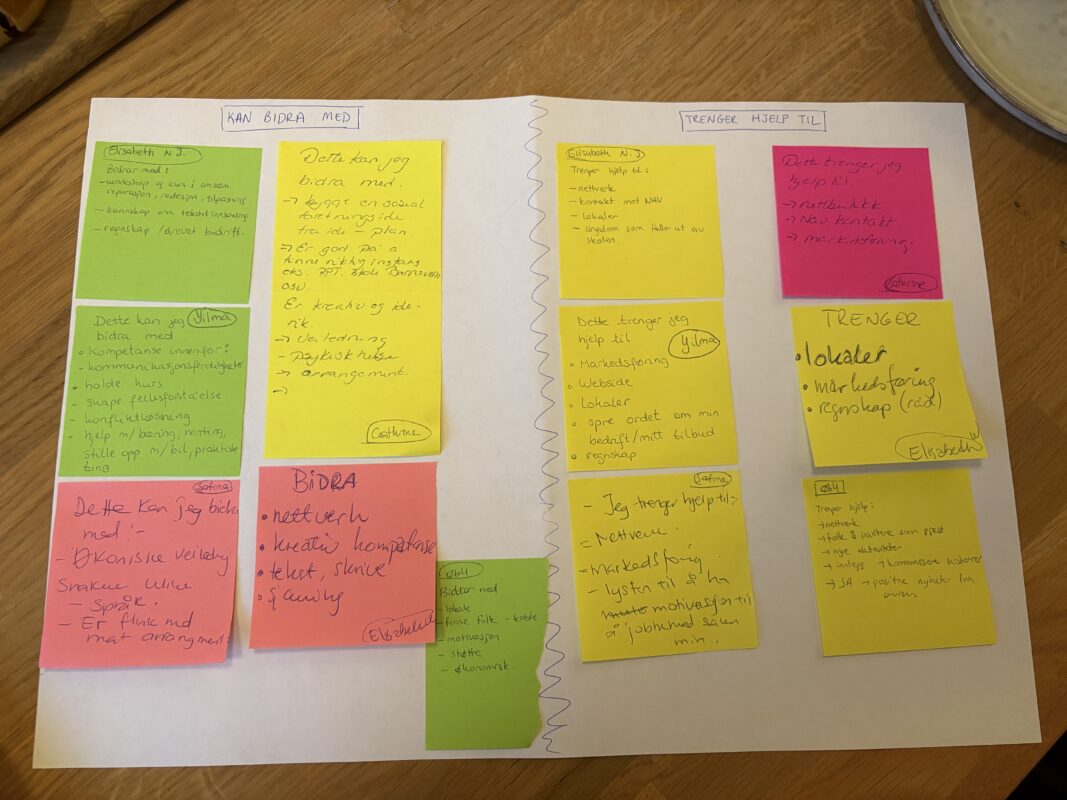 KAN BIDRA MED
Elisabeth N.J.
Bidrar med:
- workshop og kurs i
reparasjon, redesign, tilpasning
- kunnskap om tekstil innsamling
- regnskap / drevet bedrift.
Dette kan jeg
bidra med.
-> bygge en sosial
foretningside
fra ide - plan
-> Er god på å
finne riktig instans
eks. PPT. Skole Barnevern
osv.
Er kreativ og ide-
rik.
-> Veiledning
- Psykisk helse
-> arrangement.
->
Cathrine
Dette kan jeg Yilma
bidra med
• Kompetanse innenfor:
- kommunikasjonsferdigheter
• holde kurs
- skape fellesforståelse
- konfliktløsning
- hjelp m/bæring, henting,
stille opp m/bil, praktiske
ting
Safina
Dette kan jeg bidra
med :-
- Økoniske
Snakker ulike
- Språk.
- Er flink med
mat arrangment
BIDRA
• nettverk
• kreativ kompetanse
• tekst, skrive
•
Elisabeth W
Bidrar med
- lokale
- finne folk - koble
- motivasjon
- støtte
- økonomisk
TRENGER HJELP TIL
Elisabeth N.J.
Trenger hjelp til:
- nettverk
- kontakt mot NAV
- lokaler
- ungdom som faller ut av
skolen.
Dette trenger jeg
hjelp til
-> nettbutikk
-> Nav kontakt.
-> markedsføring.
Cathrine
Dette trenger jeg
hjelp til Yilma
• Markedsføring
• Webside
• Lokaler
• spre ordet om min
bedrift/mitt tilbud
• regnskap
TRENGER
• lokaler
• markedsføring
• regnskap (råd)
Elisabeth W
Safina
- Jeg trenger hjelp til:-
= Nettverk.
= Markedsføring
- lysten til å ha
motivasjon til
å jobbe med saken
min.
Trenger hjelp:
-> nettverk
-> folk å invitere som gjest
- nye aktiviteter
-> innlegg -> kommunisere historier
-> SA -> positive nyheter fra